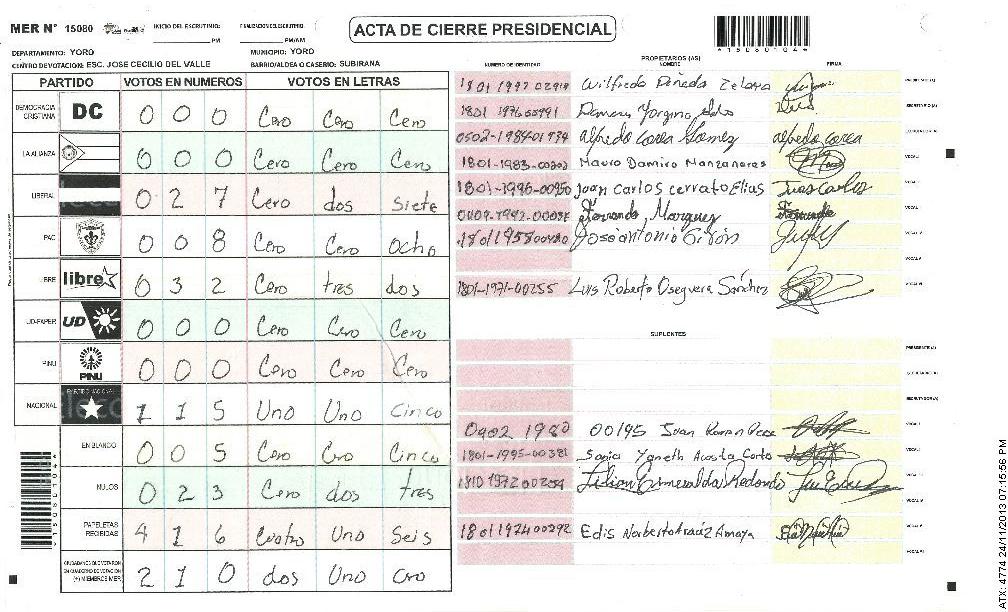 MER N° 15080
INICIO DEL ESCRUTINIO: PM
FINALIZACION ESCRUTINIO: PM/AM
ACTA DE CIERRE PRESIDENCIAL
4150801044
DEPARTAMENTO: YORO MUNICIPIO: YORO
CENTRO DE VOTACION: ESC. JOSE CECILIO DEL VALLE BARRIO/ALDEA O CASERIO: SUBIRANA
PARTIDO VOTOS EN NUMEROS VOTOS EN LETRAS
DEMOCRACIA CRISTIANA DC 0 0 0 Cero Cero Cero
LA ALIANZA 0 0 0 Cero Cero Cero
LIBERAL 0 2 7 Cero dos Siete
PAC 0 0 8 Cero Cero Ocho
LIBRE libre 0 3 2 Cero tres dos
UD-FAPER UD 0 0 0 Cero Cero Cero
PINU PINU 0 0 0 Cero Cero Cero
NACIONAL 1 1 5 Uno Uno Cinco
EN BLANCO 0 0 5 Cero Cero Cinco
NULOS 0 2 3 Cero dos tres
PAPELETAS RECIBIDAS 4 1 6 Cuatro Uno Seis
CIUDADANOS QUE VOTARON EN CUADERNO DE VOTACION (+) MIEMBROS MER 2 1 0 dos Uno Cero
PROPIETARIOS (AS)
NUMERO DE IDENTIDAD NOMBRE FIRMA
Wilfredo Pineda Zelaya PRESIDENTE (A)
SECRETARIO (A)
0502-1984-01734 Alfredo Corea Gomez alfredo corea
1801-1983-00202 Mauro Damiro Manzanares
Juan Carlos Cerrato Elias Juan Carlos
Fernando Marquez
Jose Antonio Girón
1801-1971-00255 Luis Roberto Oseguera Sánchez
SUPLENTES
PRESIDENTE (A)
SECRETARIO (A)
ESCRUTADOR (A)
0902 1980 00195 Juan Ramon
1801-1995-00381 Sonia Yaneth Acosta
Lilian Esmeralda Redondo
1801197400292 Edis Norberto Amaya
ATX: 4774 24/11/2013 07:15:56 PM